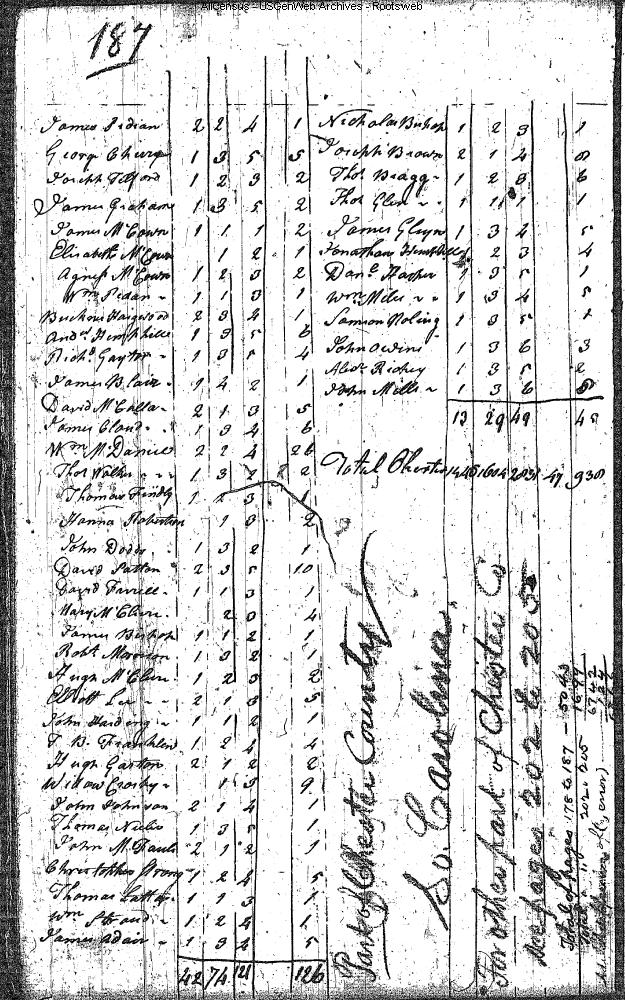 AllCensus - USGenWeb Archives - Rootsweb
187
James Pedian 2 2 4 1
George Cherry 1 3 5 5
Joseph Telford 1 2 3 2
James Graham 1 3 5 2
James McCown 1 1 1 2
Elisabeth McCown 1 2 1
Agness McCown 1 2 3 2
Wm Pedan 1 1 3 1
Hargwood 2 3 4 1
Andw Hemphill 1 3 5 6
Richd Gayton 1 3 5 4
James Blair 1 4 2 1
David McCalla 2 1 3 5
James Cloud 1 3 4 6
Wm McDaniel 2 2 4 26
Thos Walker 1 3 2 2
Thomas Findly 1 2 3 1
Hanna Robertson 1 3 2
John Dodds 1 3 2 1
David Patton 2 3 5 10
David Farrell 1 1 3 1
Mary McClure 2 0 4
James Bishop 1 1 2 1
Robt Morrison 1 3 2 1
Hugh McClure 1 2 3 2
Elliott Lee 2 1 3 5
John Harding 1 1 2 1
T. B. Franklin 1 2 4 4
Hugh Gaston 2 1 2 2
Widow Crosby 1 3 9
John Johnson 2 1 4 1
Thomas 1 3 5 1
John McFaul 2 1 2 1
Christopher Strong 1 2 4 5
Thomas 1 1 3 1
Wm Stroud 1 2 4 1
James Adair 1 3 4 5
42 74 121 126
Nicholas Bishop 1 2 3 1
Joseph Brown 2 1 4 8
Thos Bragg 1 2 3 6
Thos Glen 1 1 1 1
James Glenn 1 3 4 5
Jonathan Hemphill 2 3 4
Danl Harper 1 3 5 1
Wm Miles 1 3 4 5
Samson Noling 1 3 5 1
John Owens 1 3 6 3
Alexr Richey 1 3 5 2
John Mills 1 3 6 5
13 29 49 45
Total Chester 1446 1604 2831 47 938
Part of Chester County
So. Carolina
For other part of Chester Co
see pages 202 to 205
Total of pages 178 to 187 - 5043
202 to 205 1699
6742